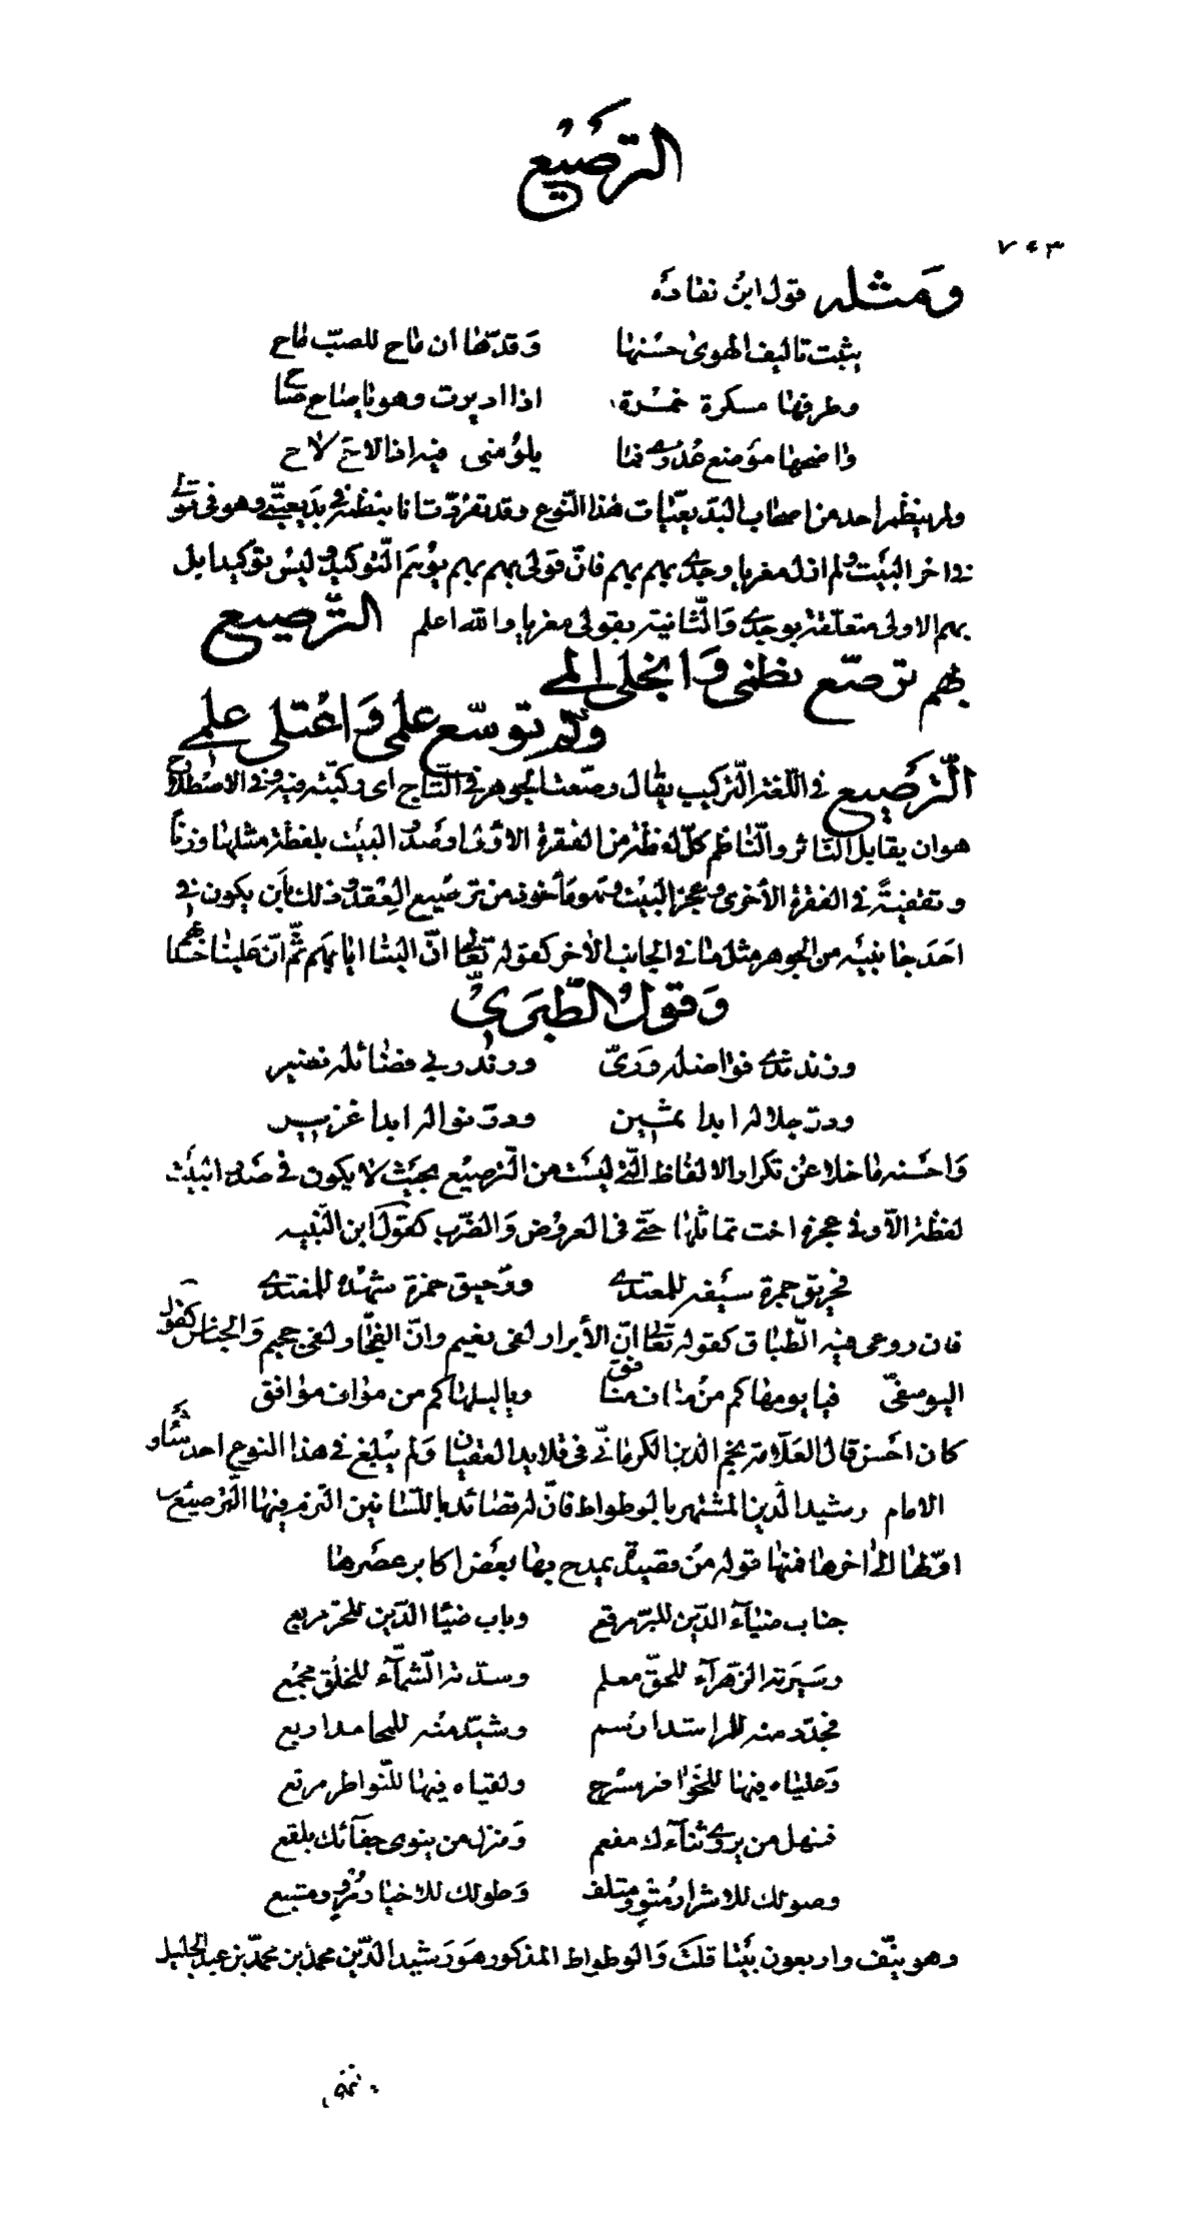 الترصيع
٧٤٣
ومثله قول ابن نفاده
يثبت تاليف الهوى حسنها وقدّها ان ماح للصبّ ماح
وطرفها مسكرة خمره اذا اديرت وهو نا صاح صاح
واضحها مؤضع عذري فما يلؤمنى فيه اذا لاح لاح
ولم ينظم احد من اصحاب البديعيّات هذا النّوع وقد تفرّدت انا بنظمه فى بديعيّتي وهو فى قولي
فى اخر البيت ولم ازل مغريا وجدي بهم بهم فانّ قولى بهم بهم يوهم التوكيد وليس توكيدا بل
بهم الاولى متعلقة بوجدي والثانية بقولى مغريا والله اعلم الترصيع
بهم ترصّع نظمى وانجلى المي
ولم توسّع علمى واعتلى علمي
الترصيع فى اللغة التركيب يقال رصّعت الجوهر فى التاج اى ركّبته فيه وفى الاصطلاح
هو ان يقابل الناثر والنّاظم كلّ لفظة من الفقرة الاولى او صدر البيت بلفظة مثلها وزنا
وتقفيةً فى الفقرة الأخرى وعجز البيت وهو مأخوذ من ترصيع العقد وذلك بأن يكون فى
احد جانبيه من الجوهر مثل ما فى الجانب الأخر كقوله تعالى انّ الينا ايابهم ثمّ انّ علينا حسابهم
وقول الطبرى
وزند ندي فواضله ورىّ ورند ربى فضائله نضير
ودرّ جلاله ابدا ثمين ودرّ نواله ابدا غزير
واحسنه ما خلا عن تكرار الالفاظ التى ليست من الترصيع بحيث لا يكون فى صدر البيت
لفظة الّا ولى عجزه اخت تماثلها حتّى فى العروض والضرب كقول ابن النبيه
فحريق جمرة سيفه للمعتدي ورحيق خمرة سيبه للمفتدي
فان روعى فيه الطباق كقوله تعالى انّ الأبرار لفى نعيم وانّ الفجّار لفى جحيم والجناس كقول
اليوصفىّ فيا يومها كم من مناف منافق ويا ليلها كم من مواف موافق
كان احسن قال العلّامة نجم الدين الكرمانّى فى قلايد العقيان ولم يبلغ فى هذا النوع احد شاو
الامام رشيد الدين المشتهر بالوطواط فانّ له قصائد باللسانين التزم فيها الترصيع من
اوّلها الى اخرها فمنها قوله من قصيدة يمدح بها بعض اكابر عصرها
جناب ضياء الدين للبرّ مرتع وباب ضيا الدّين للحرّ مربع
وسيرته الزهراء للحقّ معلم وسدّته الشمّاء للخلق مجمع
فجدّد منه للراشدا رسم وشيّد منه للمحامد اربع
وعلياه فيها للخوا مسرح ولقياه فيها للنّواظر مرتع
فمنهل من يروي ثناءك مفعم ومنزل من ينوى جفائك بلقع
وصولك للاشرار متو ومتلف وطولك للاخيار مرو ومشبع
وهو نيّف واربعون بيتا قلت والوطواط المذكور هو رشيد الدّين محمد بن محمّد بن عبد الجليل